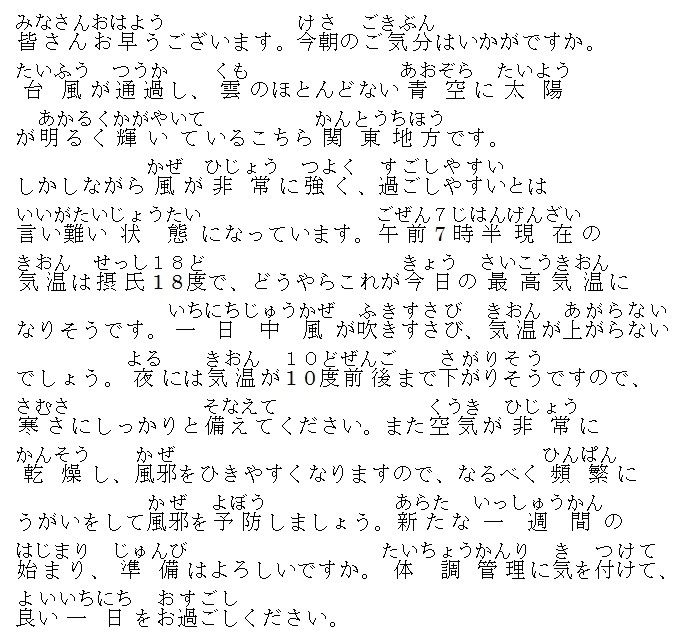 みなさんおはよう　けさ　ごきぶん
皆さんお早うございます。今朝のご気分はいかがですか。
たいふう　つうか　くも　あおぞら　たいよう
台風が通過し、雲のほとんどない青空に太陽
あかるくかがやいて　かんとうちほう
が明るく輝いているこちら関東地方です。
かぜ　ひじょう　つよく　すごしやすい
しかしながら風が非常に強く、過ごしやすいとは
いいがたいじょうたい　ごぜん７じはんげんざい
言い難い状態になっています。午前7時半現在の
きおん　せっし１８ど　きょう　さいこうきおん
気温は摂氏18度で、どうやらこれが今日の最高気温に
いちにちじゅうかぜ　ふきすさび　きおん　あがらない
なりそうです。一日中風が吹きすさび、気温が上がらない
よる　きおん　１０どぜんご　さがりそう
でしょう。夜には気温が10度前後まで下がりそうですので、
さむさ　そなえて　くうき　ひじょう
寒さにしっかりと備えてください。また空気が非常に
かんそう　かぜ　ひんぱん
乾燥し、風邪をひきやすくなりますので、なるべく頻繁に
かぜ　よぼう　あらた　いっしゅうかん
うがいをして風邪を予防しましょう。新たな一週間の
はじまり　じゅんび　たいちょうかんり　き　つけて
始まり、準備はよろしいですか。体調管理に気を付けて、
よいいちにち　おすごし
良い一日をお過ごしください。